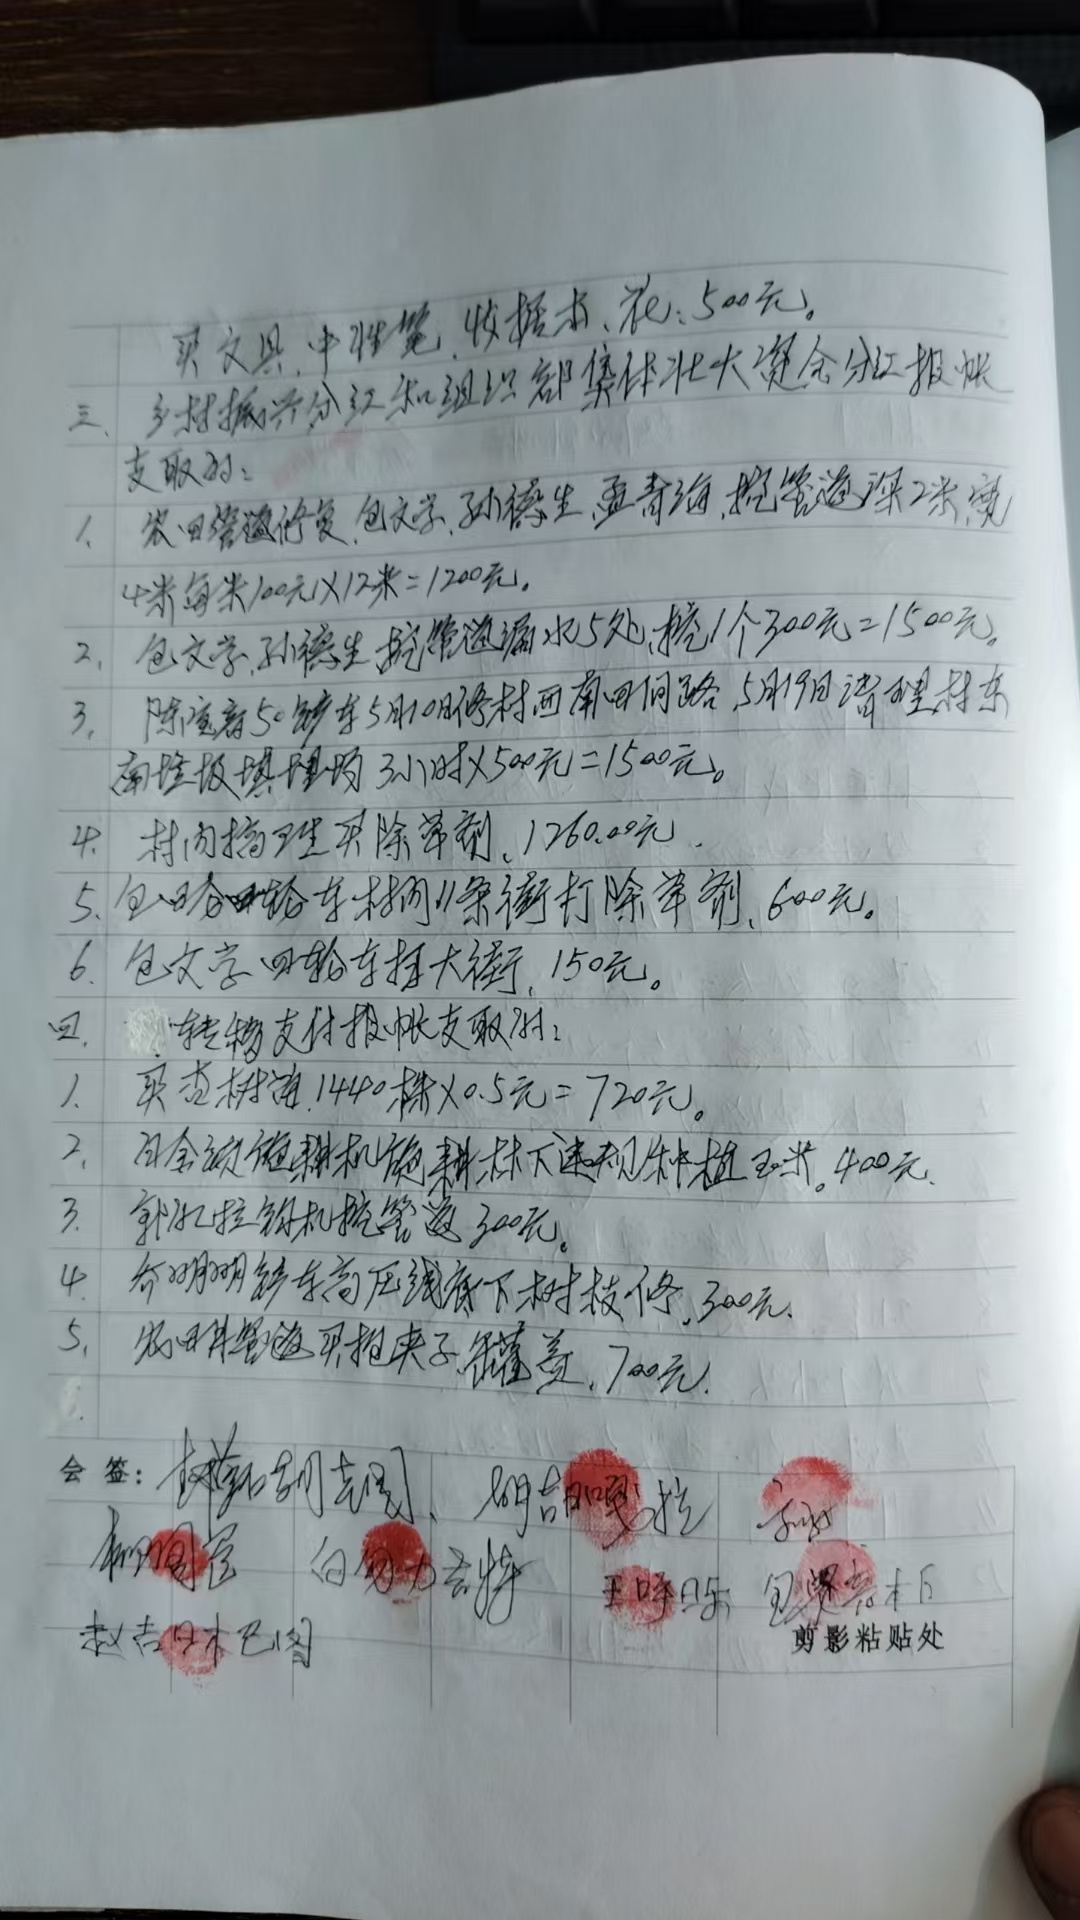 买文具、中性笔、收据本、花:500元。
三、乡村振兴分红和组织部集体壮大资金分红报帐
支取的:
1、农田管道修复,包文学、孙德生、孟青海,挖管道深2米,宽
4米每米100元X12米=1200元。
2、包文学、孙德生挖管道漏水5处,挖1个300元=1500元。
3、50铲车5月10日修村西南田间路,5月19日清理村东
南垃圾填埋场3小时X500元=1500元。
4、村内搞卫生买除草剂、1260.00元.
5、四轮车村内11条街打除草剂、600元。
6、包文学四轮车拉大街,150元。
四、转移支付报帐支取的:
1、买杏树苗,1440棵X0.5元=720元。
2、旋耕机旋耕林下违规种植玉米。400元.
3、钩机挖管道300元。
4、明明铲车高压线底下树枝修,300元.
5、农田井管道买抱夹子、罐盖,700元.
会 签:
白 力吉特
赵吉日木巴图
剪影粘贴处